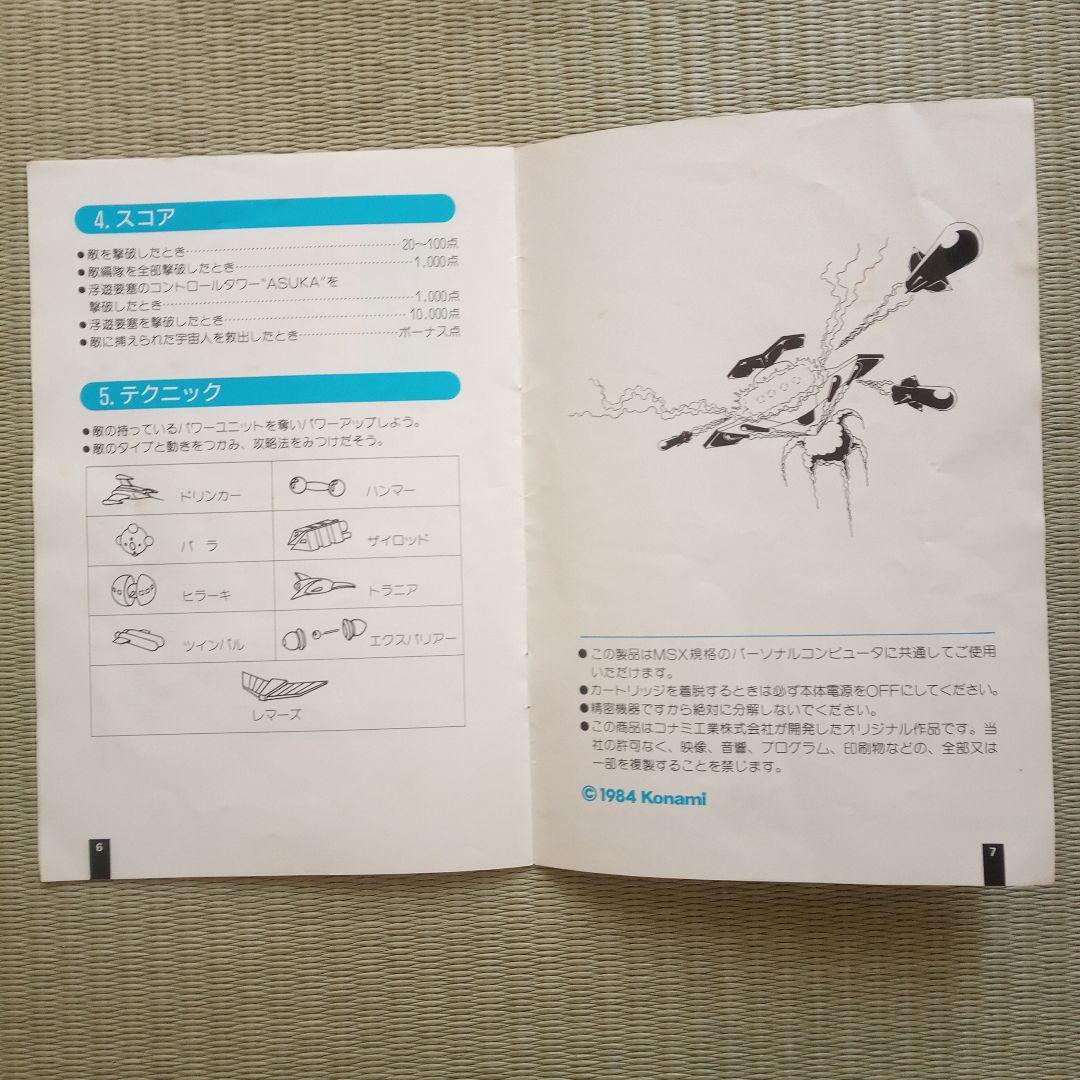 4. スコア
●敵を撃破したとき……………………………………20〜100点
●敵編隊を全部撃破したとき……………………………1,000点
●浮遊要塞のコントロールタワー"ASUKA"を
撃破したとき……………………………………………1,000点
●浮遊要塞を撃破したとき………………………………10,000点
●敵に捕えられた宇宙人を救出したとき………………ボーナス点
5. テクニック
●敵の持っているパワーユニットを奪いパワーアップしよう。
●敵のタイプと動きをつかみ、攻略法をみつけだそう。
ドリンカー ハンマー
バラ ザイロッド
ヒラーキ トラニア
ツインバル エクスバリアー
レマーズ
6
●この製品はMSX規格のパーソナルコンピュータに共通してご使用
いただけます。
●カートリッジを着脱するときは必ず本体電源をOFFにしてください。
●精密機器ですから絶対に分解しないでください。
●この商品はコナミ工業株式会社が開発したオリジナル作品です。当
社の許可なく、映像、音響、プログラム、印刷物などの、全部又は
一部を複製することを禁じます。
©1984 Konami
7